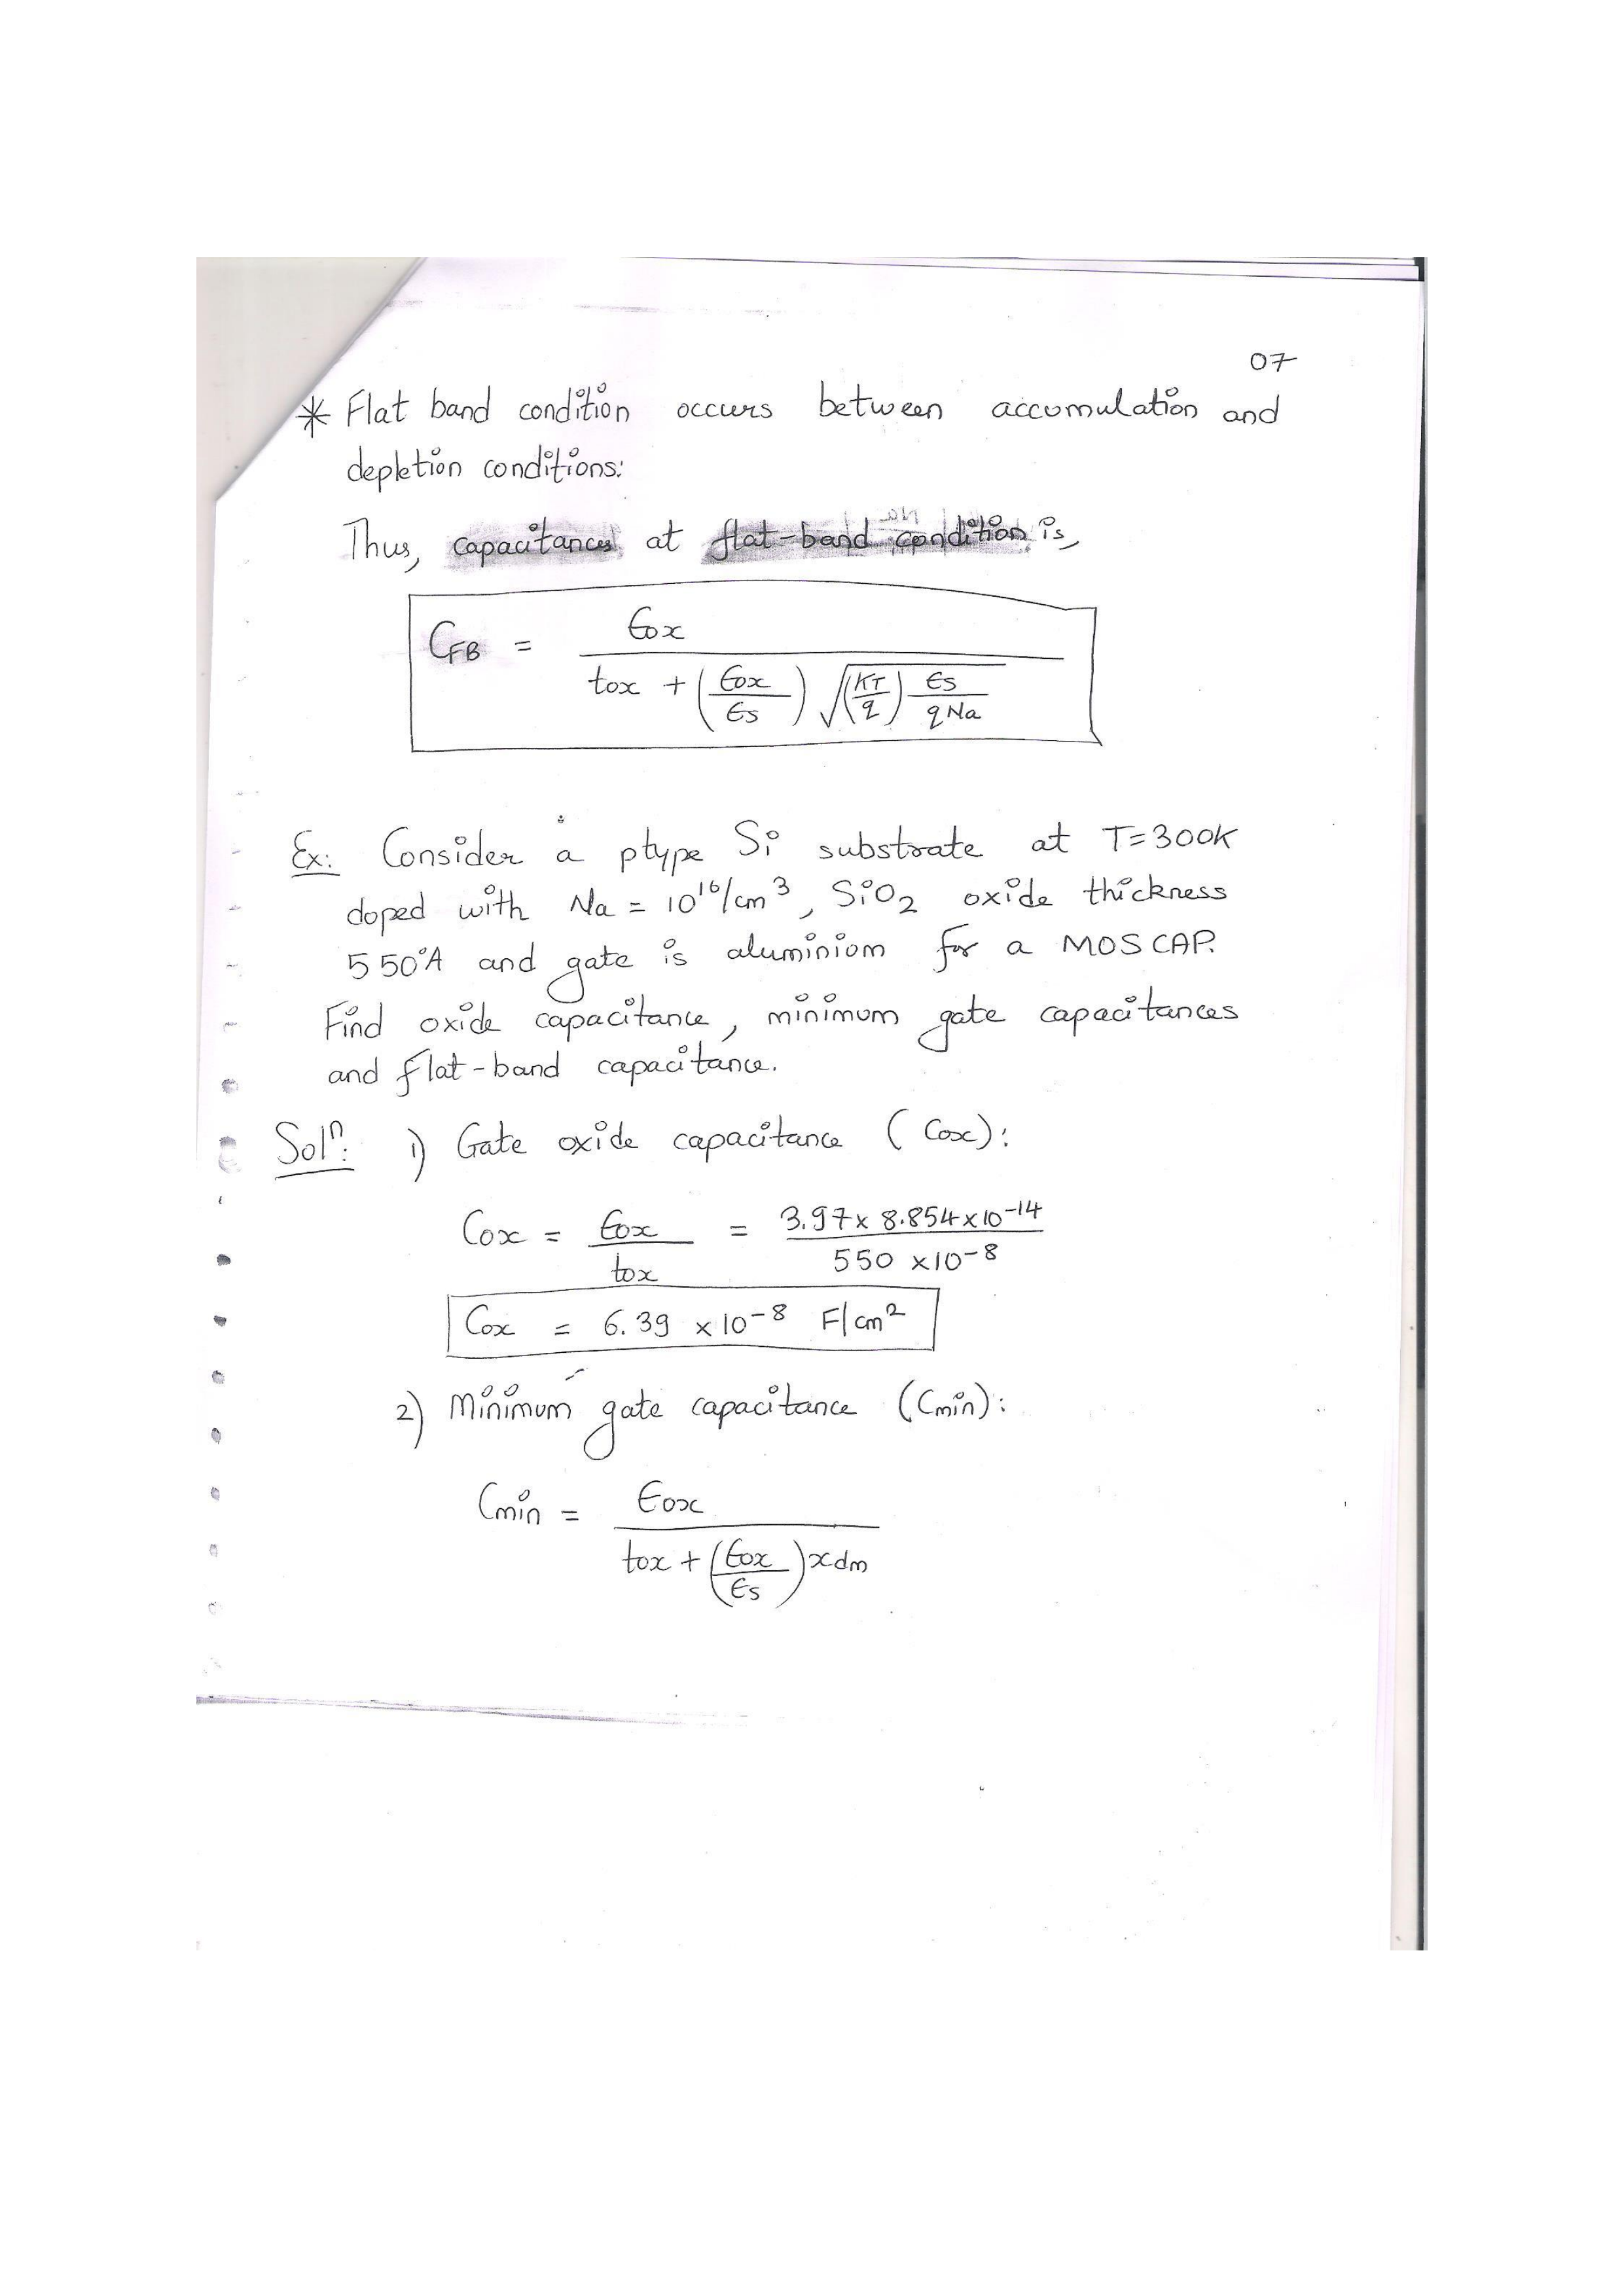 07
* Flat band condition occurs between accumulation and
depletion conditions:
Thus, capacitances at flat-band condition is,
CFB = ϵox / (tox + (ϵox/ϵs) √((KT/q) ϵs/qNa))
Ex: Consider a ptype Si substrate at T=300K
doped with Na = 10¹⁶/cm³, SiO₂ oxide thickness
550°A and gate is aluminium for a MOSCAP.
Find oxide capacitance, minimum gate capacitances
and flat-band capacitance.
Solⁿ: 1) Gate oxide capacitance (Cox):
Cox = ϵox/tox = 3.97 x 8.854 x 10⁻¹⁴ / 550 x 10⁻⁸
Cox = 6.39 x 10⁻⁸ F/cm²
2) Minimum gate capacitance (Cmin):
Cmin = ϵox / (tox + (ϵox/ϵs) xdm)